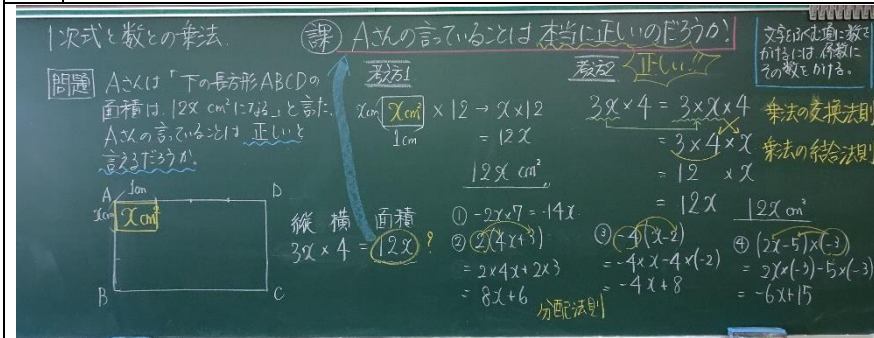 1次式と数との乗法.
課 Aさんの言っていることは 本当に正しいのだろうか!
問題 Aさんは「下の長方形ABCDの
面積は、12x cm²になる」と言った。
Aさんの言っていることは 正しいと
言えるだろうか.
A 1cm D
xcm x cm²
B C
縦 横 面積
3x × 4 = 12x ?
考え方1
xcm x cm² × 12 → x × 12
1cm = 12x
12x cm²
考え方2 正しい!!
3x × 4 = 3 × x × 4
= 3 × 4 × x
= 12 × x
= 12x 12x cm²
乗法の交換法則
乗法の結合法則
かけるには 係数に
その数をかける。
① -2x×7 = -14x
② 2(4x+3)
= 2×4x+2×3
= 8x+6
分配法則
③ -4(x-2)
= -4×x-4×(-2)
= -4x+8
④ (2x-5)×(-3)
= 2x×(-3)-5×(-3)
= -6x+15